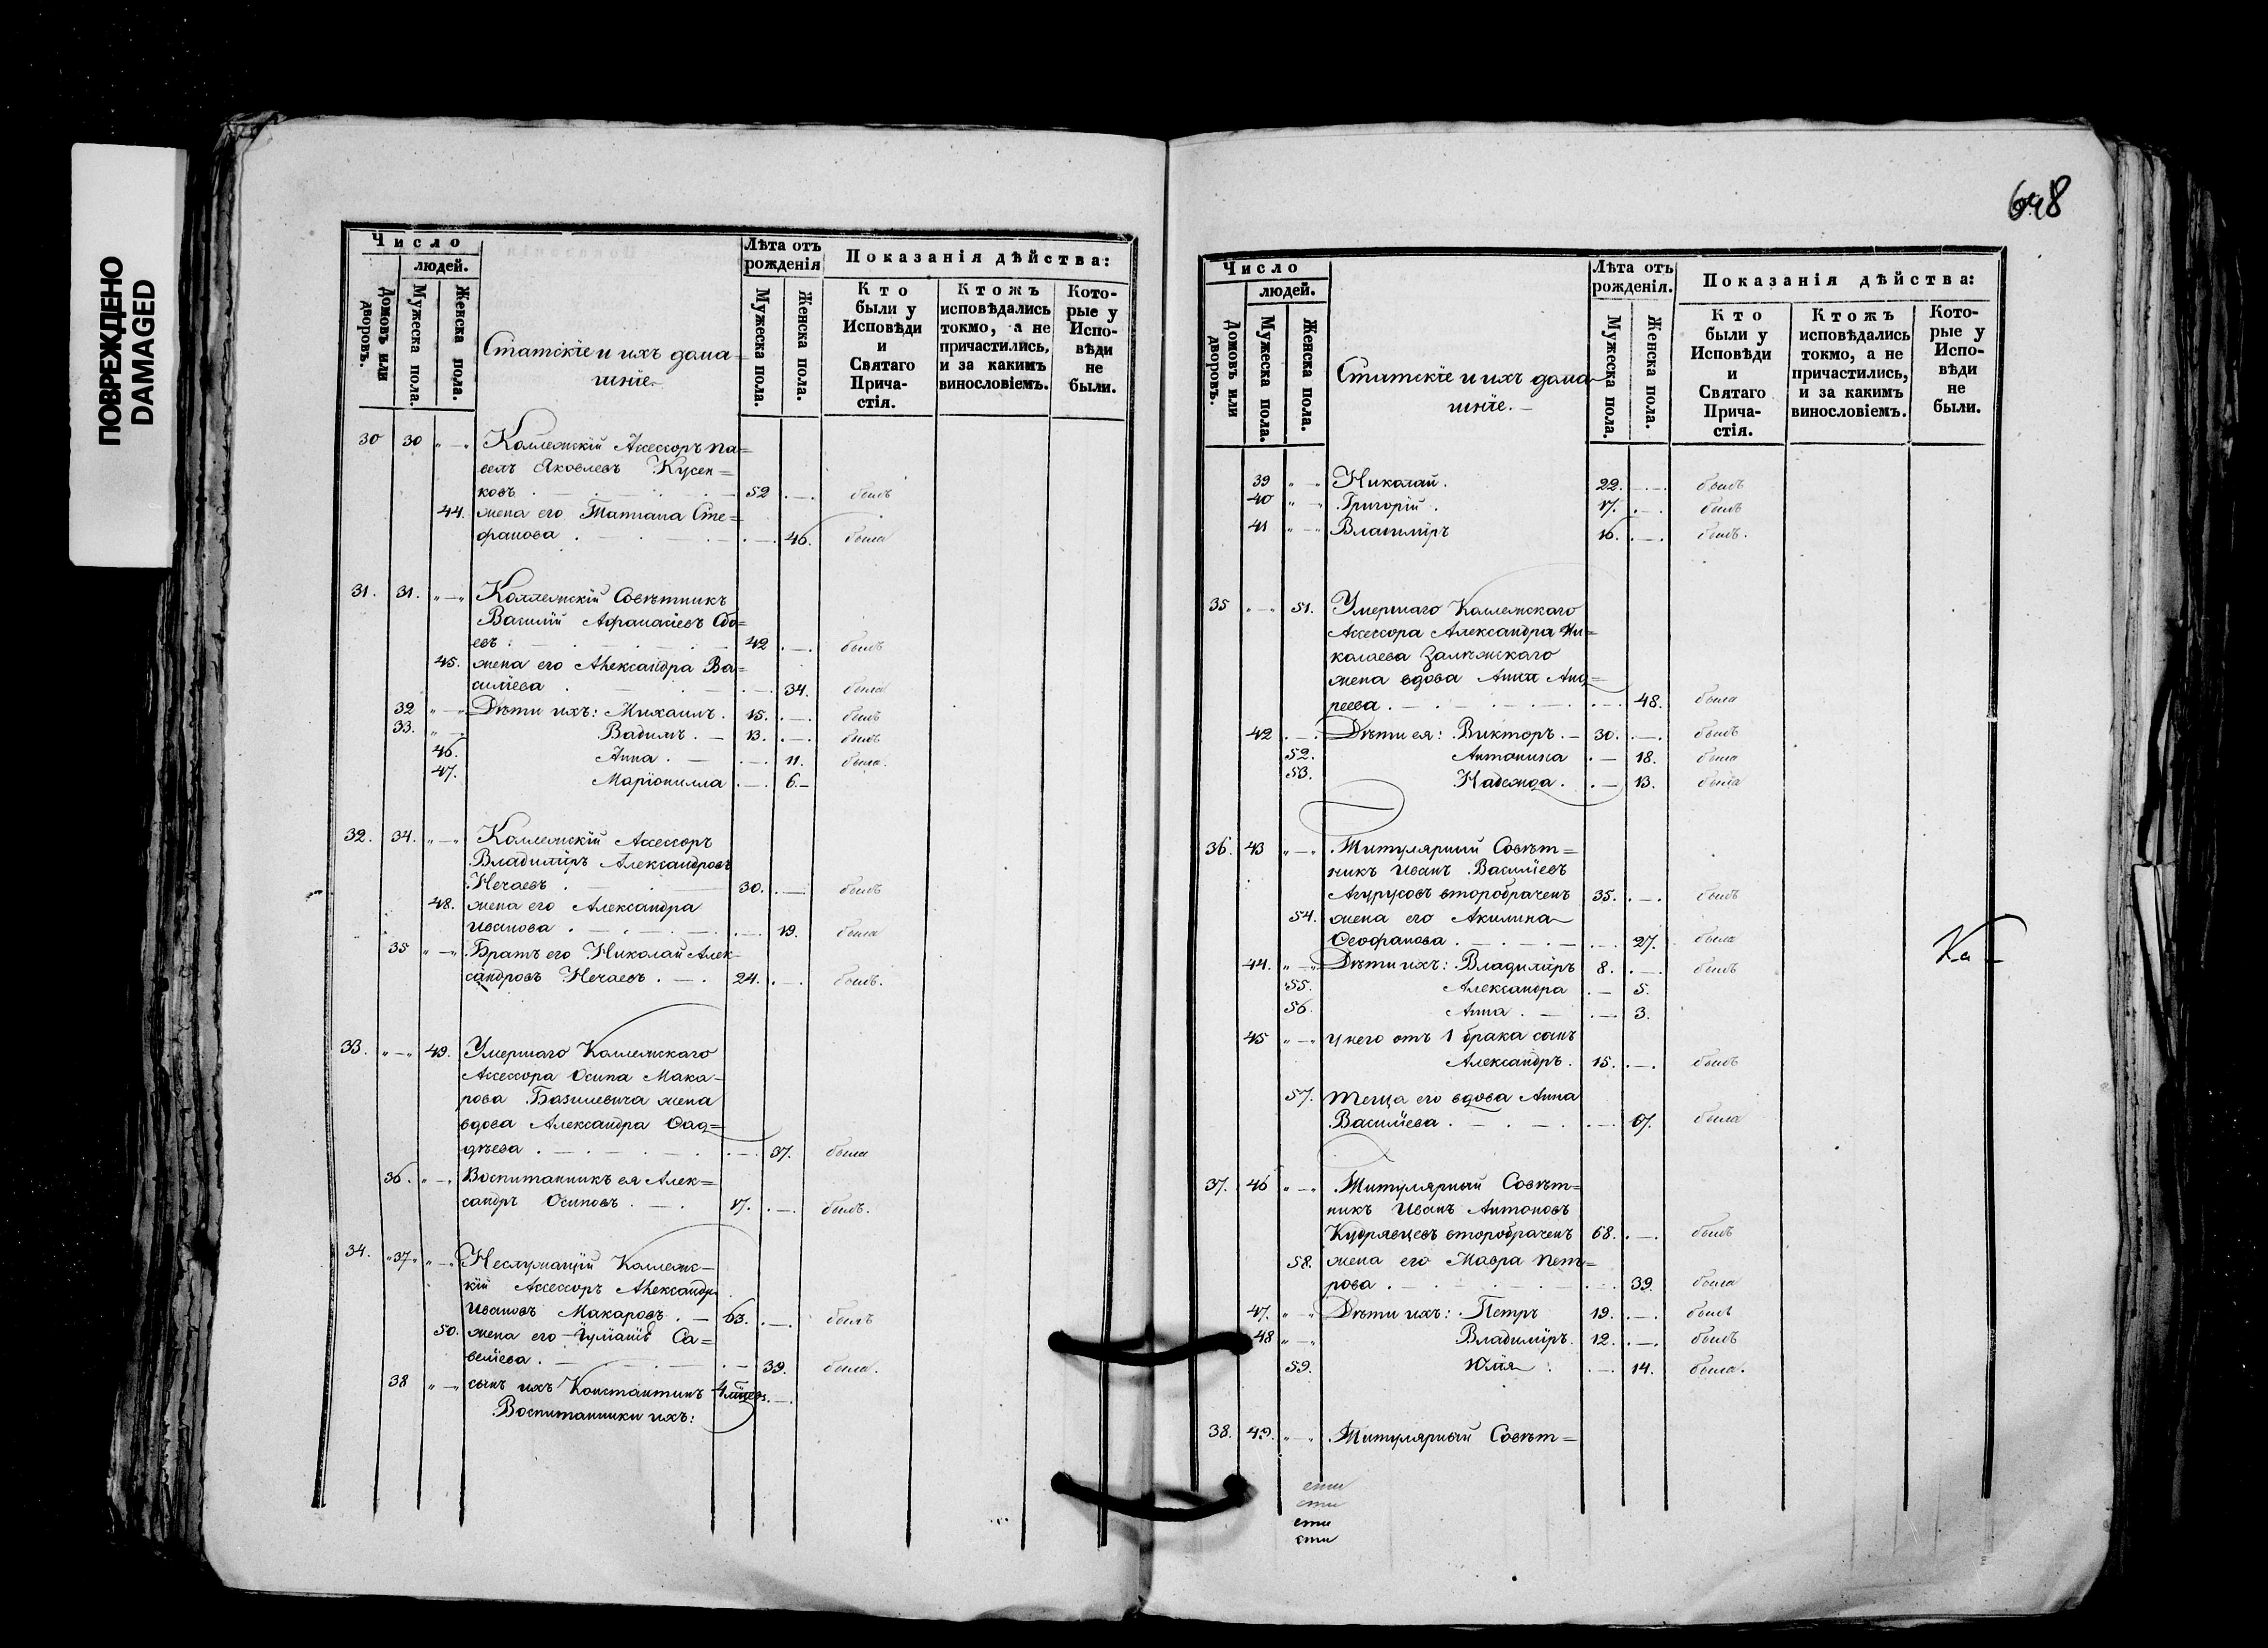 ПОВРЕЖДЕНО
DAMAGED
Число
людей.
Домовъ или дворовъ.
Мужеска пола.
Женска пола.
Статскіе и ихъ дома=
шніе.
Лѣта отъ рожденія
Мужеска пола.
Женска пола.
Показанія дѣйства:
Кто были у Исповѣди и Святаго Прича-стія.
Ктожъ исповѣдались токмо, а не причастились, и за какимъ винословіемъ.
Кото-рые у Испо-вѣди не были.
30 30 „—„ Коллежскій Ассессоръ Па=
велъ Яковлевъ Кусен=
ковъ . — 52 . — . былъ
44. жена его Татіана Сте=
фанова . — . — 46. была
31. 31. „—„ Коллежскій Совѣтникъ
Василій Афанасіевъ
евъ . — 42 . — . былъ
45. жена его Александра Ва=
силіева . — 34. была
32 „—„ Дѣти ихъ: Михаилъ . 15. . — . былъ
33. „—„ Вадимъ . — 13. . — . былъ
46. Анна . — . — 11. была.
47. Маріонилла . — . 6. —
32. 34. „—„ Коллежскій Ассессоръ
Владиміръ Александровъ
Нечаевъ . — 30. . — былъ
48. жена его Александра
Иванова . — . — 19. была
35 „—„ Братъ его Николай Алек-
сандровъ Нечаевъ . — . 24. . — . былъ.
33. „—„ 49. Умершаго Коллежскаго
Ассессора Осипа Мака-
рова Базилевича жена
вдова Александра Фад=
дѣева . — . — 37. была
36. „—„ Воспитанникъ ея Алек=
сандръ Осиповъ . — . 17. . — . былъ.
34. „37„ „—„ Неслужащій Коллежс-
кій Ассессоръ Александръ
Ивановъ Макаровъ . — 63. . — . былъ
50. жена его Са=
веліева . — . — 39. была.
38 „—„ сынъ ихъ Константинъ . — .
Воспитанники ихъ:
648
Число
людей.
Домовъ или дворовъ.
Мужеска пола.
Женска пола.
Статскіе и ихъ дома-
шніе. —
Лѣта отъ рожденія.
Мужеска пола.
Женска пола.
Показанія дѣйства:
Кто были у Исповѣди и Святаго Прича-стія.
Ктожъ исповѣдались токмо, а не причастились, и за какимъ винословіемъ.
Кото-рые у Испо-вѣди не были.
39 „—„ Николай . 22. . — . былъ
40 „—„ Григорій . 17. . — . былъ
41 „—„ Владиміръ 16. . — . былъ.
35 „—„ 51. Умершаго Коллежскаго
Ассессора Александра Ни=
колаева Залѣжскаго
жена вдова Анна Анд=
реева . — . — 48. была
42 . — . Дѣти ея: Викторъ . — 30. . — . былъ
52. Антонина . — 18. была
53. Надежда . . — 13. была
36. 43 „—„ Титулярный Совѣт=
никъ Иванъ Василіевъ
второбраченъ 35. . — . былъ
54. жена его Акилина
Ѳеофанова . — . — 27. была
44. „—„ Дѣти ихъ: Владиміръ 8. . — . былъ
55. Александра . — 5.
56 Анна . — . — 3.
45 „—„ У него отъ 1 брака сынъ
Александръ . 15. . — . былъ
57. Теща его вдова Анна
Василіева . — . — 67. была
37. 46 „—„ Титулярный Совѣт=
никъ Иванъ Антоновъ
Кудрявцевъ второбраченъ 68. . — . былъ
58. жена его Мавра Пет=
рова . — . — 39. была
47. „—„ Дѣти ихъ: Петръ 19. . — . былъ
48 „—„ Владиміръ. 12. . — . былъ
59. Юлія . — 14. была.
38. 49. „—„ Титулярный Совѣт=